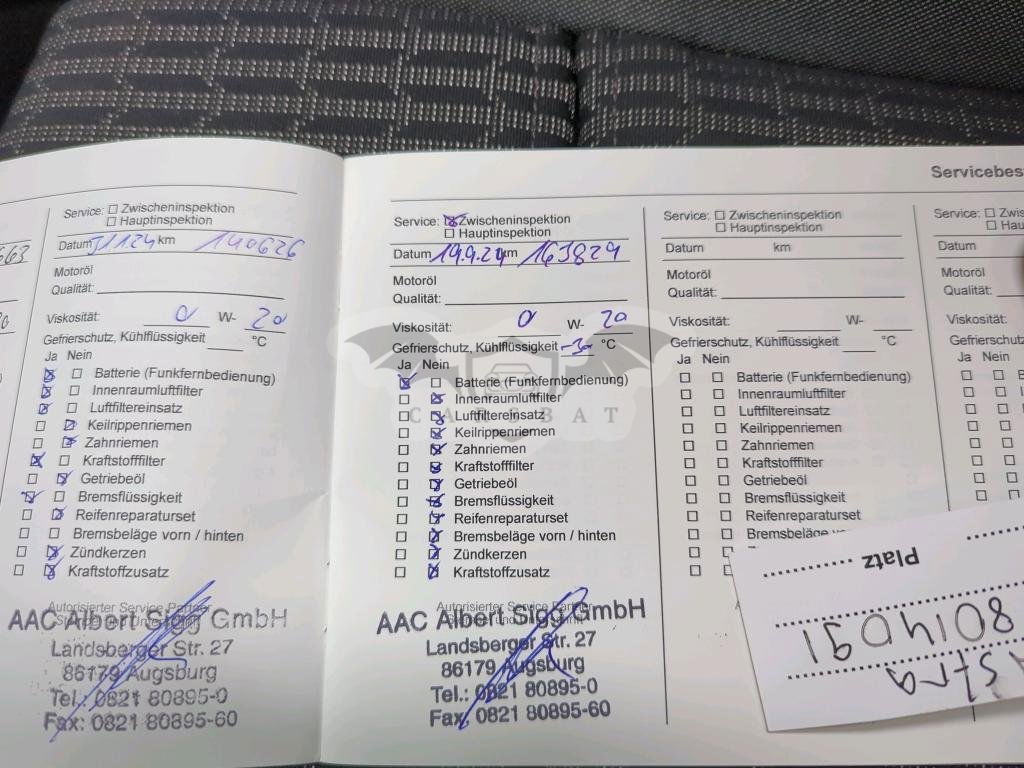 Servicebes
663
Service: Zwischeninspektion
Hauptinspektion
Datum km 140626
Motoröl
Qualität:
Viskosität: 0 W- 20
Gefrierschutz, Kühlflüssigkeit °C
Ja Nein
Batterie (Funkfernbedienung)
Innenraumluftfilter
Luftfiltereinsatz
Keilrippenriemen
Zahnriemen
Kraftstofffilter
Getriebeöl
Bremsflüssigkeit
Reifenreparaturset
Bremsbeläge vorn / hinten
Zündkerzen
Kraftstoffzusatz
Autorisierter Service Partner
AAC Albert Sigg GmbH
Landsberger Str. 27
86179 Augsburg
Tel.: 0821 80895-0
Fax: 0821 80895-60
Service: Zwischeninspektion
Hauptinspektion
Datum 19.9.24 km 163829
Motoröl
Qualität:
Viskosität: 0 W- 20
Gefrierschutz, Kühlflüssigkeit -30 °C
Ja Nein
Batterie (Funkfernbedienung)
Innenraumluftfilter
Luftfiltereinsatz
Keilrippenriemen
Zahnriemen
Kraftstofffilter
Getriebeöl
Bremsflüssigkeit
Reifenreparaturset
Bremsbeläge vorn / hinten
Zündkerzen
Kraftstoffzusatz
Autorisierter Service Partner
AAC Albert Sigg GmbH
Landsberger Str. 27
86179 Augsburg
Tel.: 0821 80895-0
Fax: 0821 80895-60
CARSBAT
Service: Zwischeninspektion
Hauptinspektion
Datum km
Motoröl
Qualität:
Viskosität: W-
Gefrierschutz, Kühlflüssigkeit °C
Ja Nein
Batterie (Funkfernbedienung)
Innenraumluftfilter
Luftfiltereinsatz
Keilrippenriemen
Zahnriemen
Kraftstofffilter
Getriebeöl
Bremsflüssigkeit
Reifenreparaturset
Bremsbeläge
Service: Zwisc
Hau
Datum
Motoröl
Qualität:
Viskosität:
Gefrierschutz, Kü
Ja Nein
Platz
8014091
Astra